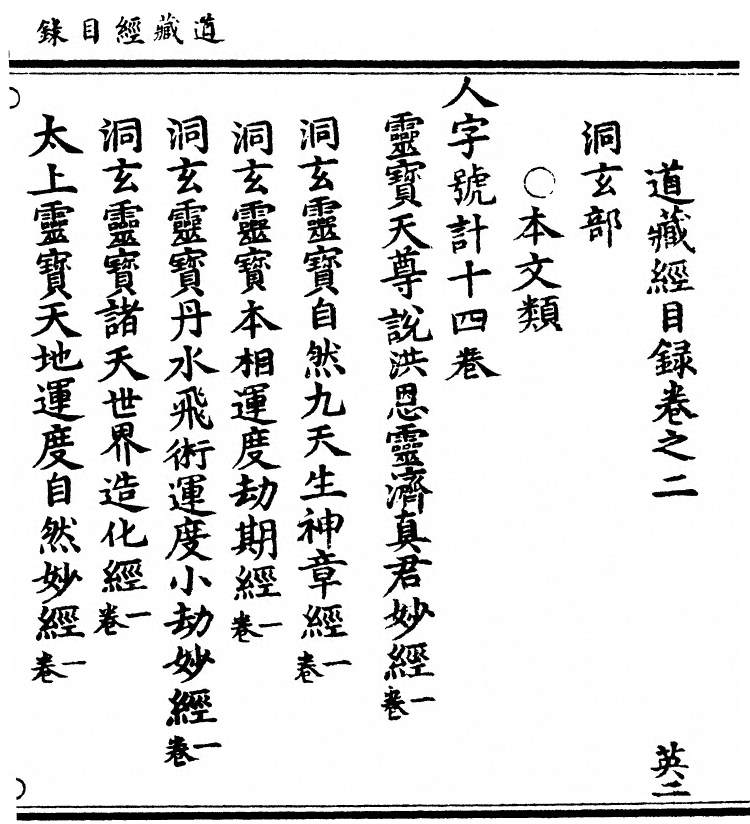 道藏經目録
道藏經目録卷之二 英二
洞玄部
○本文類
人字號計十四卷
靈寶天尊說洪恩靈濟真君妙經一卷
洞玄靈寶自然九天生神章經一卷
洞玄靈寶本相運度劫期經一卷
洞玄靈寶丹水飛術運度小劫妙經一卷
洞玄靈寶諸天世界造化經一卷
太上靈寶天地運度自然妙經一卷